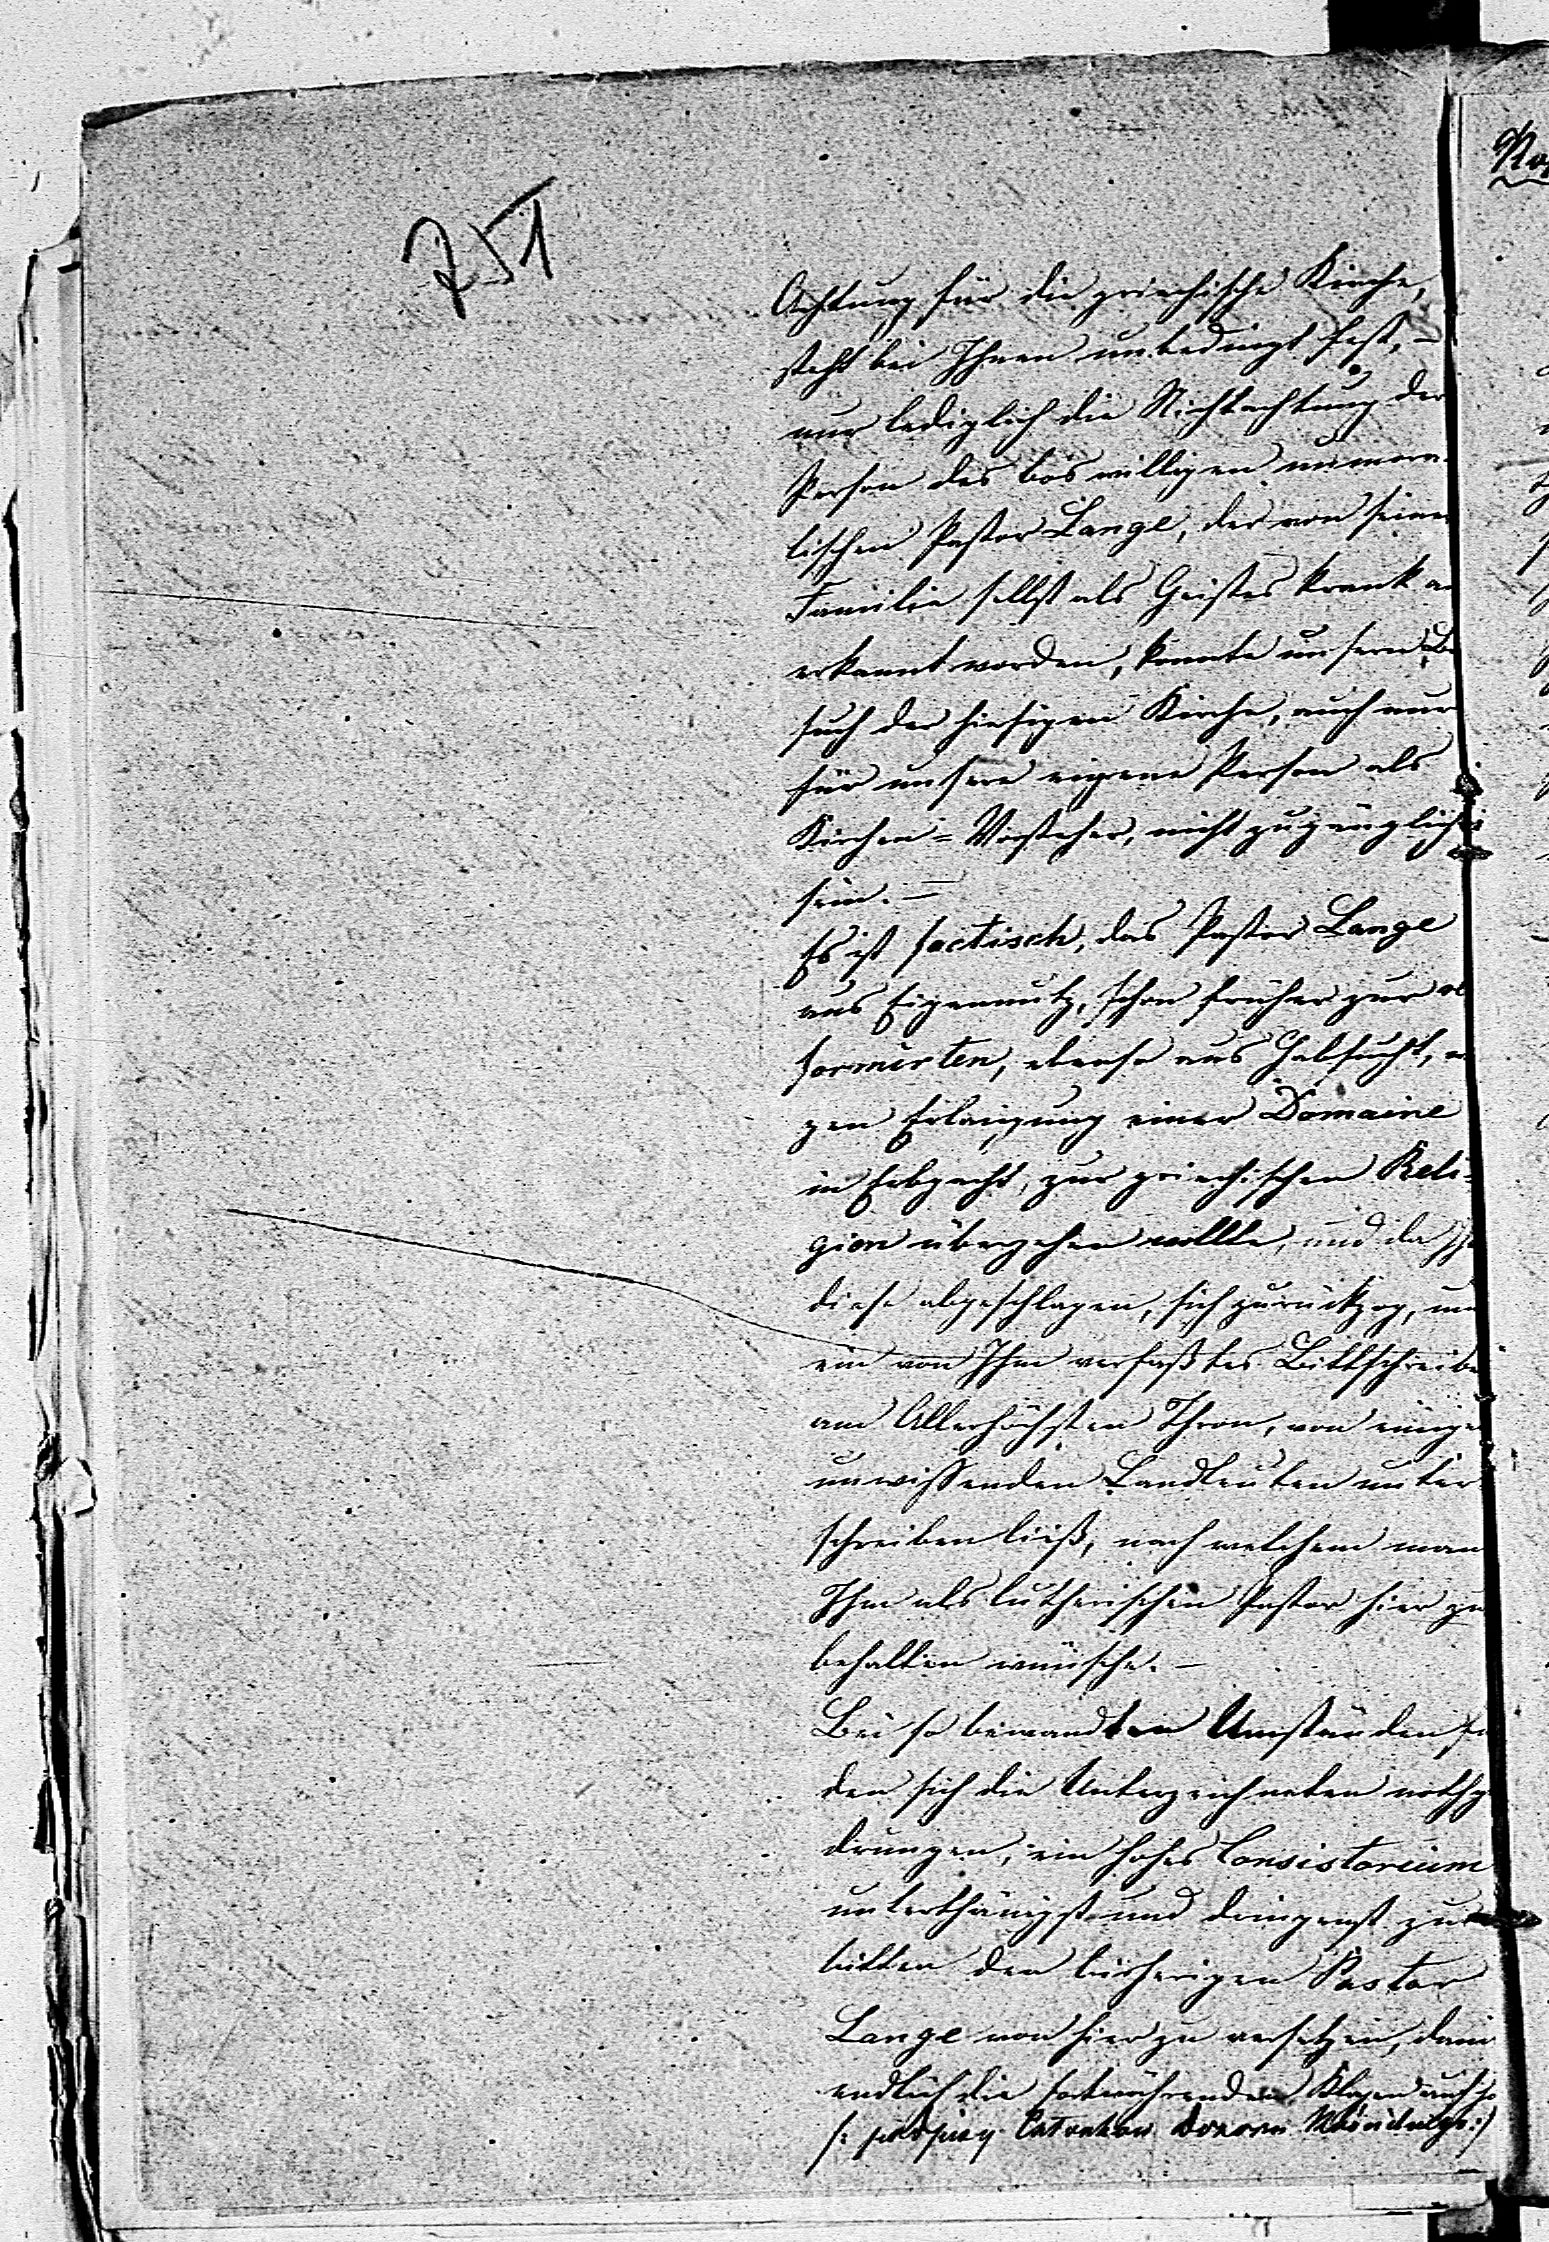 751
Achtung für die griechische Kirche,
steht bei Ihnen unbedingt fest, –
nur lediglich die Nichtachtung der
Person des böswilligen unmora-
lischen Pastor Lange, der von seiner
Familie selbst als Geistes krank an
erkannt worden, konnte unsern Be
such der hiesigen Kirche, auch nur
für unsere eigene Person als
Kirchen-Vorsteher, nicht zugänglich
sein. –
Es ist factisch, das Pastor Lange
aus Eigennutz, schon früher zur re
formirten, ebenso aus Habsucht, we
gen Erlangung einer Domaine
in Erbpacht, zur griechischen Reli-
gion übergehen wollte, und da ihm
diese abgeschlagen, sich zurückzog, und
ein von Ihm verfaßtes Bittschreiben
am Allerhöchsten Thron, von einigen
unwissenden Landleuten unter
schreiben ließ, nach welchem man
Ihm als lutherischen Pastor hier zu
behalten wünsche. –
Bei so bewandten Umständen fin
den sich die Unterzeichneten nothge
drungen, ein hohes Consistorium
unterthänigst und dringenst zu
bitten den bisherigen Pastor
Lange von hier zu versetzen, damit
endlich die fortwährenden Klagen aufhö